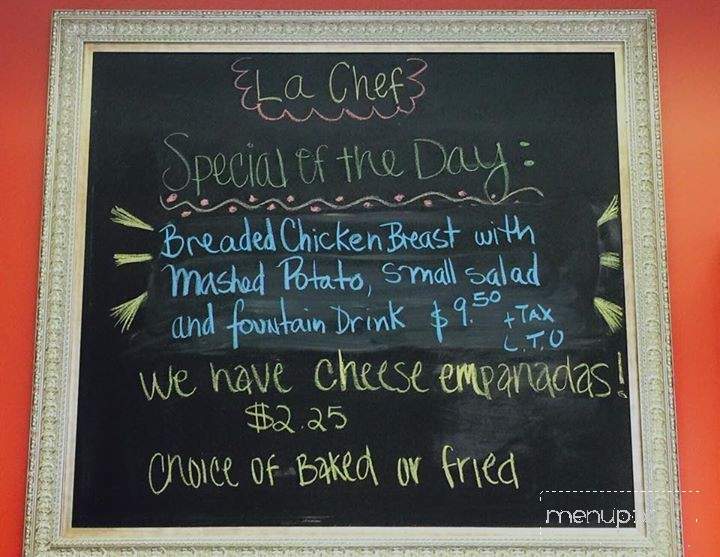 La Chef
Special of the Day:
Breaded Chicken Breast with
Mashed Potato, small salad
and fountain Drink $9.50 + TAX
L.T.O
We have cheese empanadas!
$2.25
Choice of Baked or fried
menupix